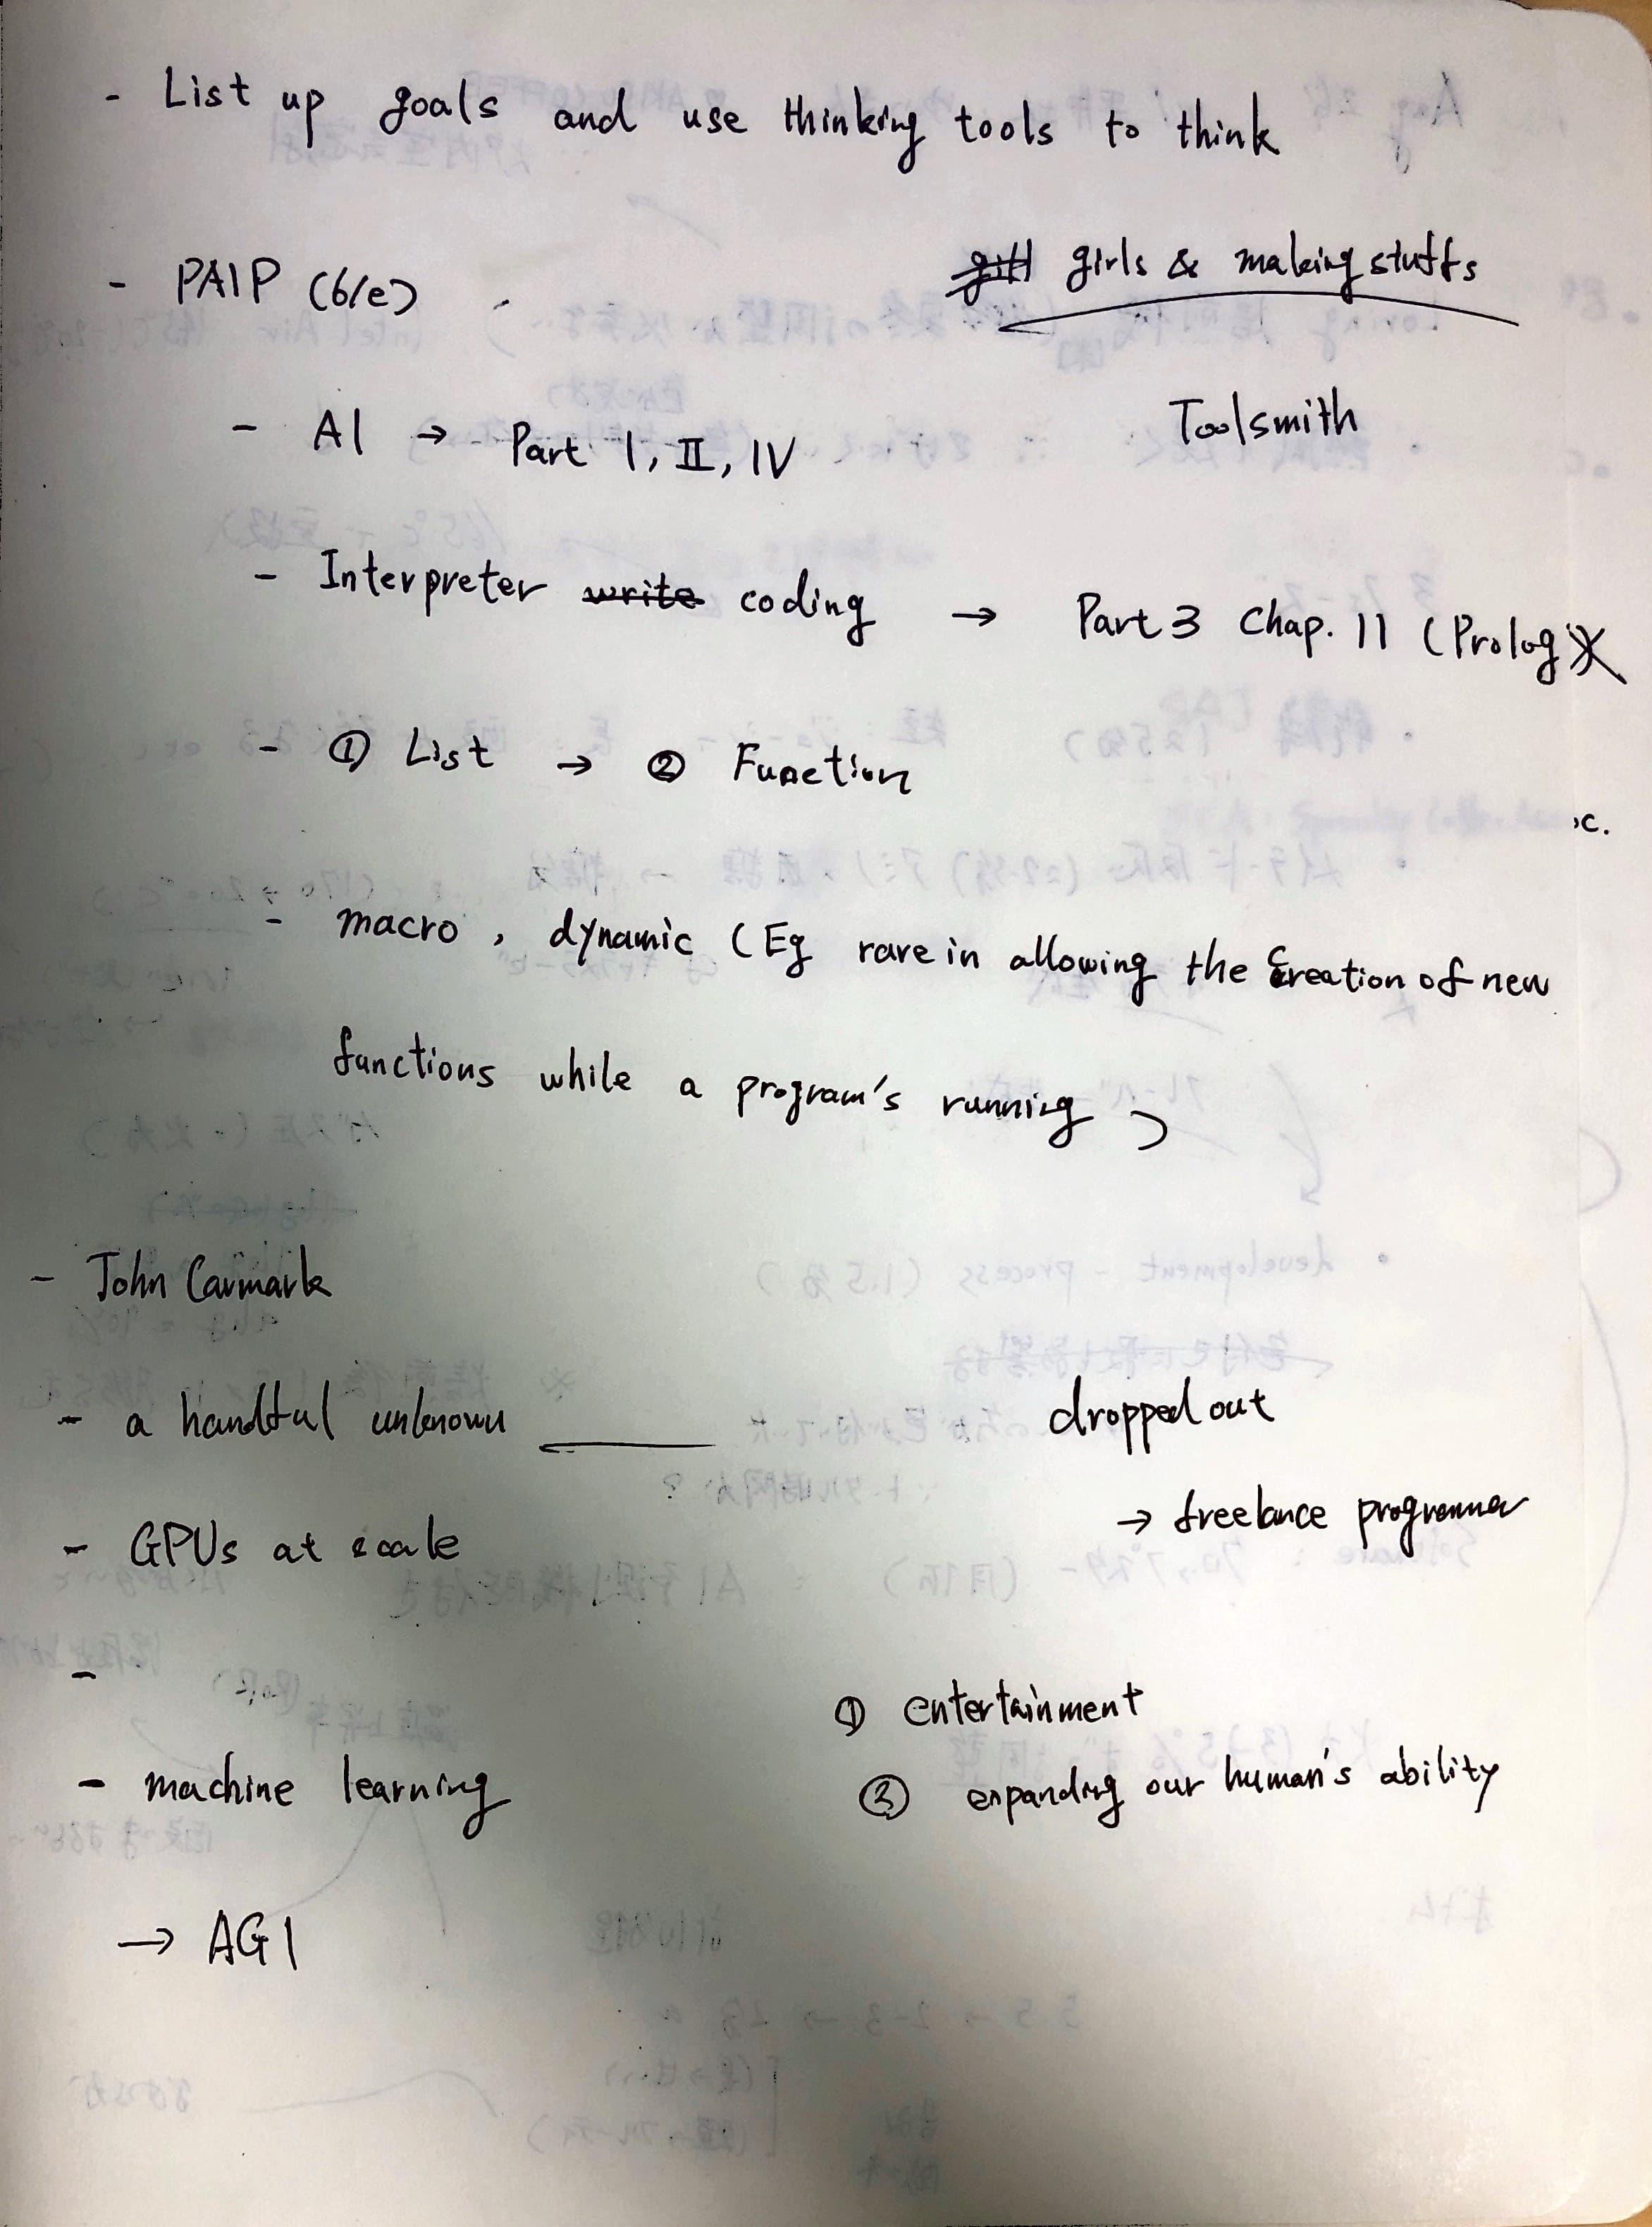 - List up goals and use thinking tools to think
girls & making stuffs
- PAIP (6/e)
- AI → Part I, II, IV
Toolsmith
- Interpreter write coding → Part 3 Chap. 11 (Prolog)
- ① List → ② Function
c.
- macro, dynamic (Eg rare in allowing the Creation of new
functions while a program's running)
- John Carmark
- a handful unknown
dropped out
→ freelance programmer
- GPUs at scale
-
① entertainment
- machine learning
② expanding our human's ability
→ AGI